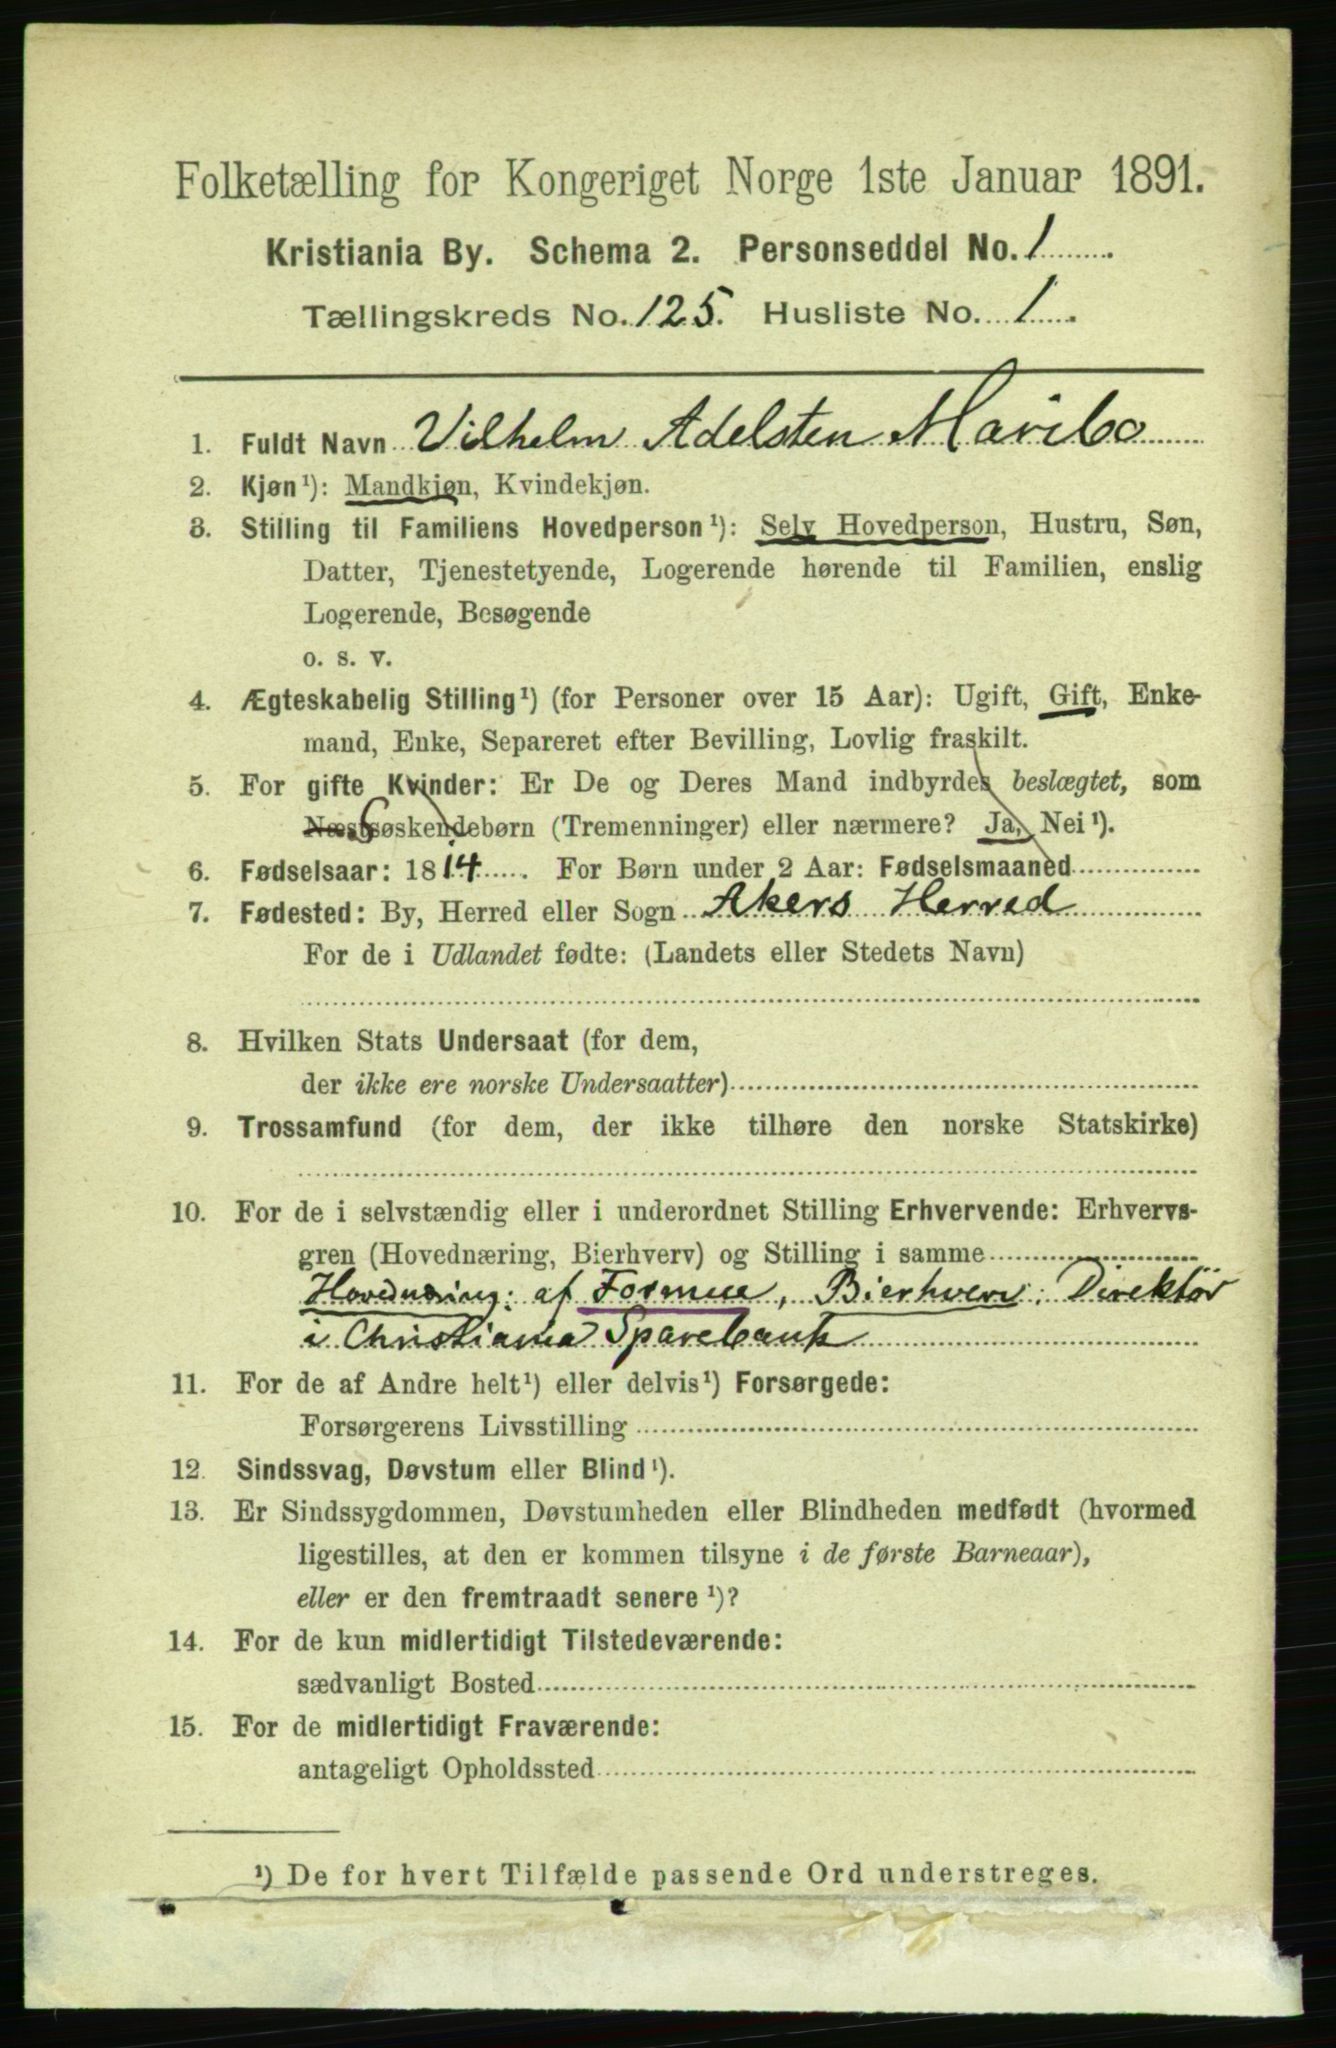 Folketælling for Kongeriget Norge 1ste Januar 1891.
Kristiania By. Schema 2. Personseddel No. 1
Tællingskreds No. 125. Husliste No. 1
1. Fuldt Navn Vilhelm Adelsten Maribo
2. Kjøn¹): Mandkjøn, Kvindekjøn.
3. Stilling til Familiens Hovedperson¹): Selv Hovedperson, Hustru, Søn,
Datter, Tjenestetyende, Logerende hørende til Familien, enslig
Logerende, Besøgende
o. s. v.
4. Ægteskabelig Stilling¹) (for Personer over 15 Aar): Ugift, Gift, Enke-
mand, Enke, Separeret efter Bevilling, Lovlig fraskilt.
5. For gifte Kvinder: Er De og Deres Mand indbyrdes beslægtet, som
Næstsøskendebørn (Tremenninger) eller nærmere? Ja, Nei¹).
6. Fødselsaar: 1814. For Børn under 2 Aar: Fødselsmaaned
7. Fødested: By, Herred eller Sogn Akers Herred
For de i Udlandet fødte: (Landets eller Stedets Navn)
8. Hvilken Stats Undersaat (for dem,
der ikke ere norske Undersaatter)
9. Trossamfund (for dem, der ikke tilhøre den norske Statskirke)
10. For de i selvstændig eller i underordnet Stilling Erhvervende: Erhvervs-
gren (Hovednæring, Bierhverv) og Stilling i samme
Hovednæring: af Formue, Bierhverv: Direktör
i Christiania Sparebank
11. For de af Andre helt¹) eller delvis¹) Forsørgede:
Forsørgerens Livsstilling
12. Sindssvag, Døvstum eller Blind¹).
13. Er Sindssygdommen, Døvstumheden eller Blindheden medfødt (hvormed
ligestilles, at den er kommen tilsyne i de første Barneaar),
eller er den fremtraadt senere¹)?
14. For de kun midlertidigt Tilstedeværende:
sædvanligt Bosted
15. For de midlertidigt Fraværende:
antageligt Opholdssted
¹) De for hvert Tilfælde passende Ord understreges.